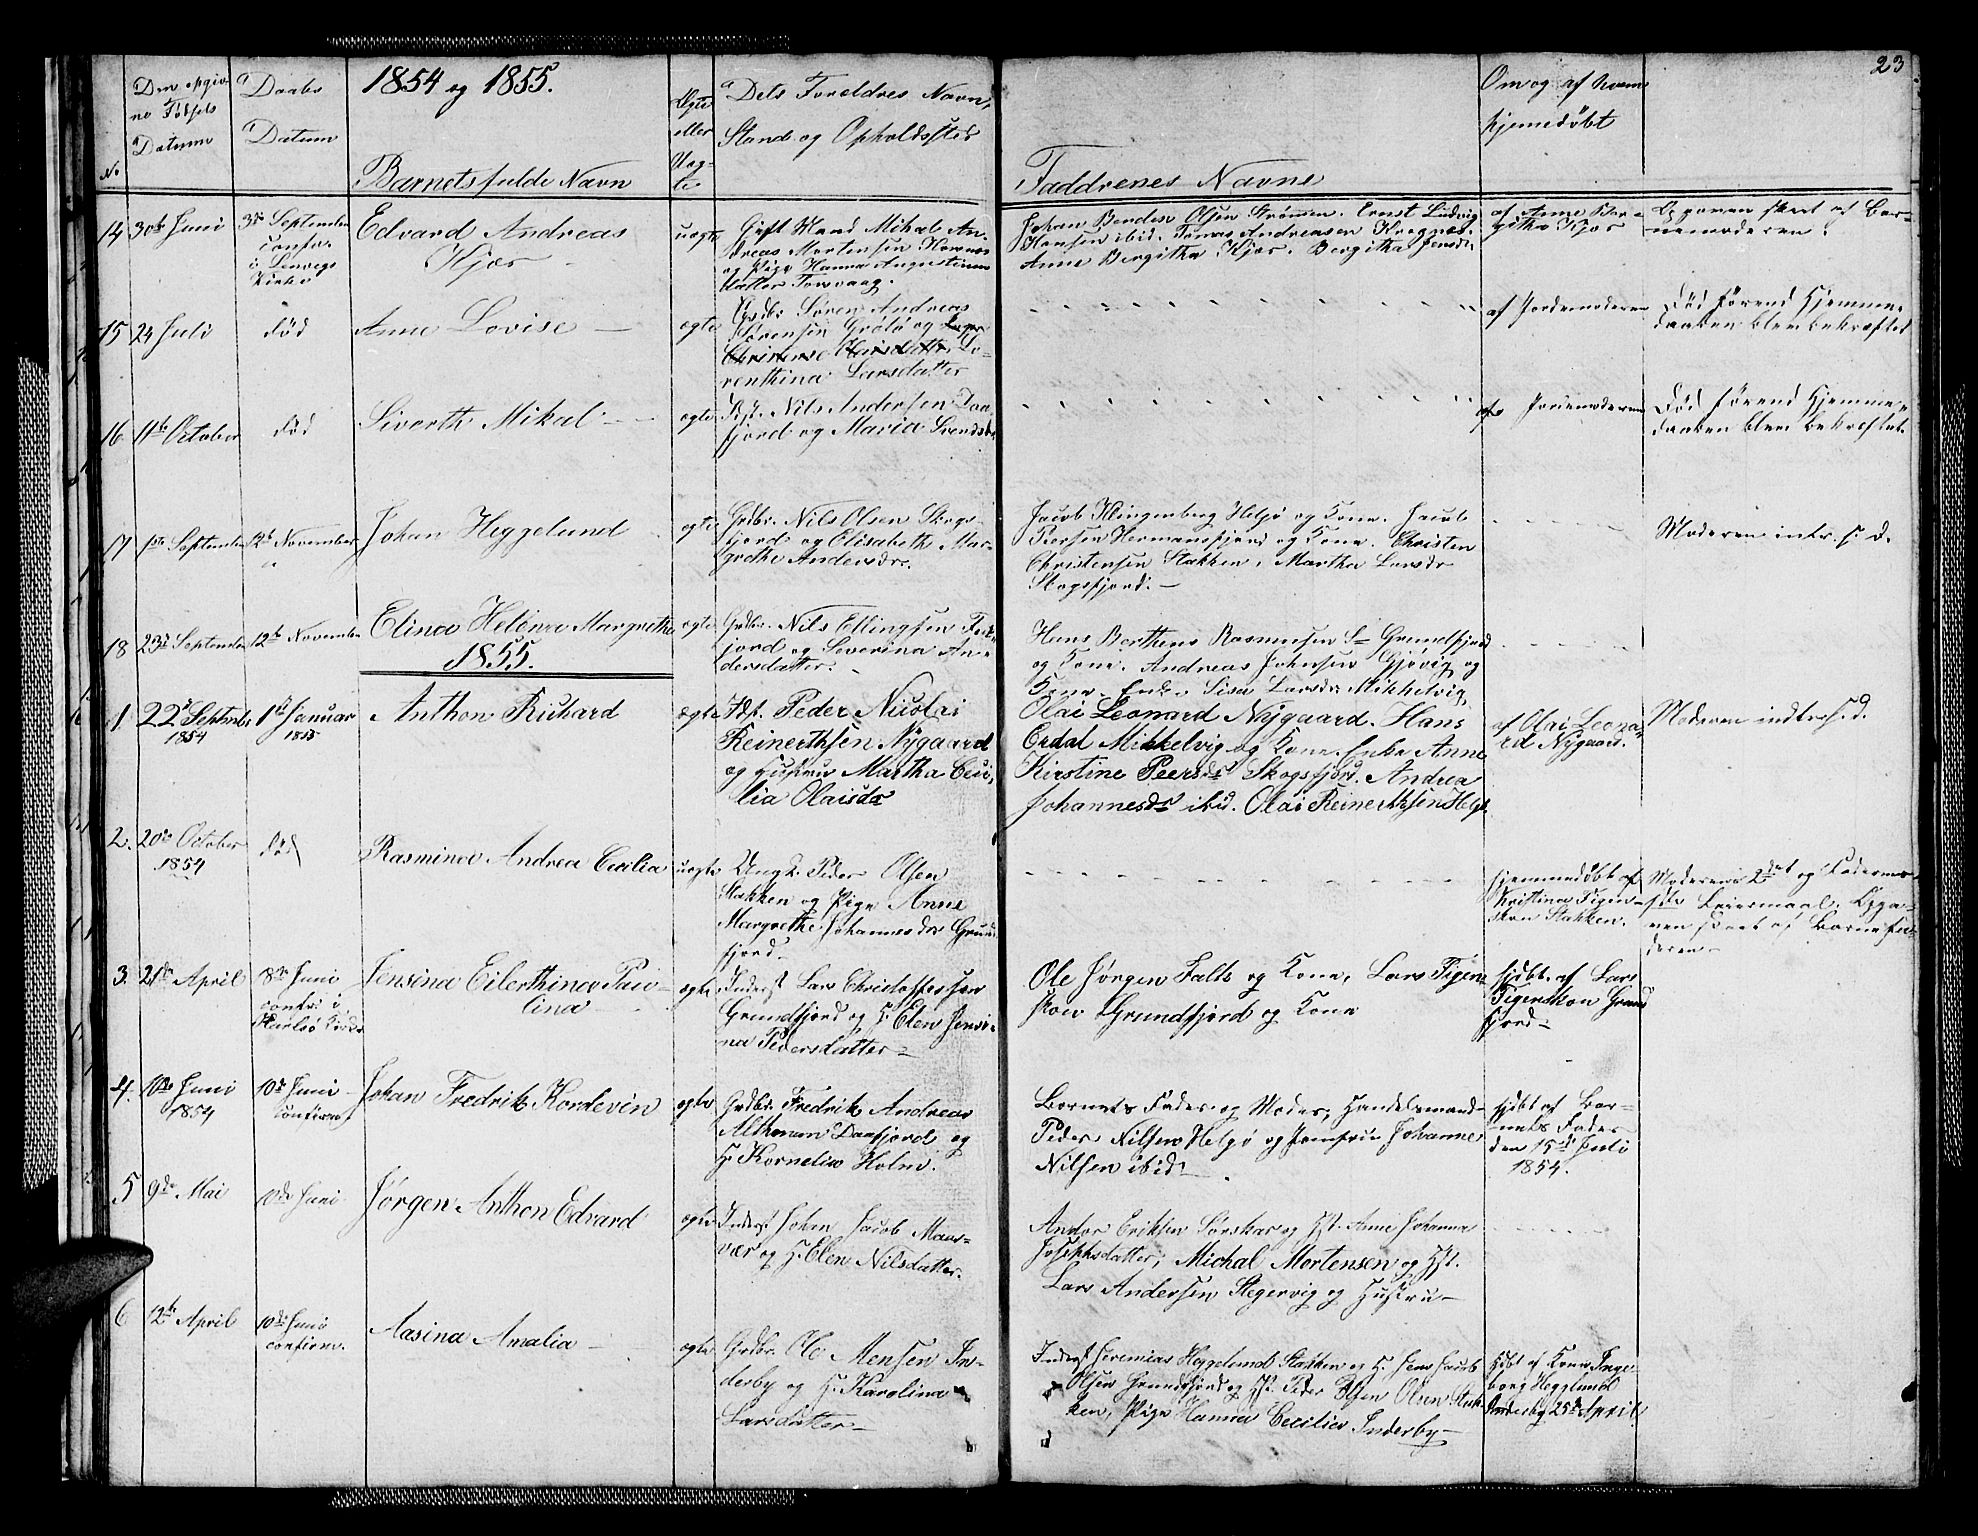 23
1854 og 1855.
No
Den opgiv-
ne Fødsels
Datum
Daabs
Datum
Barnets fulde Navn
Ægte
eller
Uæg-
te
Dets Forældres Navn,
Stand og Opholdssted
Faddrenes Navne
Om og af hvem
hjemedøbt
14 30te Juni
3die September
confir.
i Lenvigs
Kirke
Edvard Andreas
Kjær
uægte
Gift Mand Mikal An-
dreas Mortensen Havnnes
og Pige Hanna Augustinus
datter Torsvaag.
Johan Bendix Olsen Strømmen. Ernst Ludvig
Hansen ibid. Tomas Andreasen Kragnæs.
Anne Bergitha Kjær. Bergitha Jensdr
af Anne Ber-
githa Kjær
Opgaven skeet af Bar-
nemoderen.
15 24 Juli
død
Anne Lovise
ægte
Søren Andreas
Sørensen Grøtø og
Christense Olaisdatter Lo-
renthina Larsdatter
af Jordemoderen
Død førend Hjemme-
daaben blev bekræftet
16 11te October
død
Siverth Mikal
ægte
Nils Andersen Daa-
fjord og Maria Svendsdr
af Jordemoderen
Død førend Hjemme-
daaben blev bekræftet.
17 1ste September
12te November
Johan Heggelund
ægte
Grdbr. Nils Olsen Skogs-
fjord og Elisabeth Mar-
grethe Andersdr.
Jacob Klingenberg Helgø og Kone. Jacob
Peersen Hermansfjord og Kone. Christen
Christensen Stakken, Martha Larsdr
Skogsfjord.
Moderen intr. s. d.
18 23de September
12te November
Elina Helena Margretha
ægte
Grdbr. Nils Ellingsen
jord og Severina An-
dersdatter.
Hans Bertheus Rasmussen Sr Grundfjord
og Kone. Andreas Johnsen Gjøvig og
Kone. Enke Lisa Larsdr Mikkelvig
1855.
1 22de Septembr
1854
1ste Januar
1855
Anthon Richard
ægte
Peder Nicolai
Reinerthsen Nygaard
og Hustru Martha Ceci-
lia Olaisdr
Olai Leonard Nygaard. Hans
Erdal Mikkelvig og Kone. Enke Anne
Kirstine Peersdr Skogsfjord. Andrea
Johannesdr ibid. Olai Reinerthsen Helgø
af Olai Leona-
rd Nygaard.
Moderen indtr. s. d.
2. 20de October
1854
død
Rasmina Andrea Cecilia
uægte
Ungk. Peder Olsen
Stakken og Pige Anne
Margrethe Johannesdr Grund
fjord
hjemmedøbt af
Kristina Figen-
skou Stakken.
Moderens 2det og Faderens
1ste Leiermaal. Opga-
ven skeet af Barnefa-
deren
3. 21de April
8de Juni
confir i
Karlsø Kirke
Jensina Eilerthina Pau-
lina
ægte
Inderst Lars Christoffersen
Grundfjord og H. Elen Jensi-
na Pedersdatter
Ole Jørgen Falts og Kone, Lars Figen
skou Grundfjord og Kone
hjdbt. af Lars
Figenskou Grund
fjord
4. 10de Juni
1854
10de Juni
Confirm.
Johan Fredrik Kordevin
ægte
Grdbr. Fredrik Andreas
Althman Daafjord og
H. Kornelia Holm.
Barnets Fader og Moder, Handelsmand
Peder Nilsen Helgø og Jomfru Johanne
Nilsen ibid
hjdbt af Bar-
nets Fader
den 15de Juli
1854.
5 9de Mai
10de Juni
Jørgen Anthon Edvard
ægte
Inderst Johan Jacob Maas-
vær og H. Elen Nilsdatter.
Andor Eriksen Sørskar og Hst. Anne Johanna
Josephsdatter, Michal Mortensen og Hst.
Lars Andersen Slegervig og Hustru
6 12te April
10de Juni
confirm.
Aasina Amalia
ægte
Grdbr. Ole Mensen In-
derby og H. Karolina
Larsdatter
Inderst Jeremias Heggelund Stakken og H. Jens Jacob
Olsen Grundfjord og Hst. Peder Olsen Olsen Stak
ken, Pige Hanna Cecilia Inderby
Hdbt af Kone Inge-
borg Hegglund
Inderby 25de April